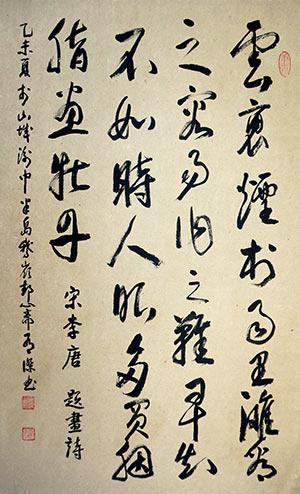 雲裏煙村雨里灘看
之容易作之難早知
不如時人眼多買胭
脂畫牡丹 宋李唐 題畫詩
乙未夏於山城渝中半島嶺書